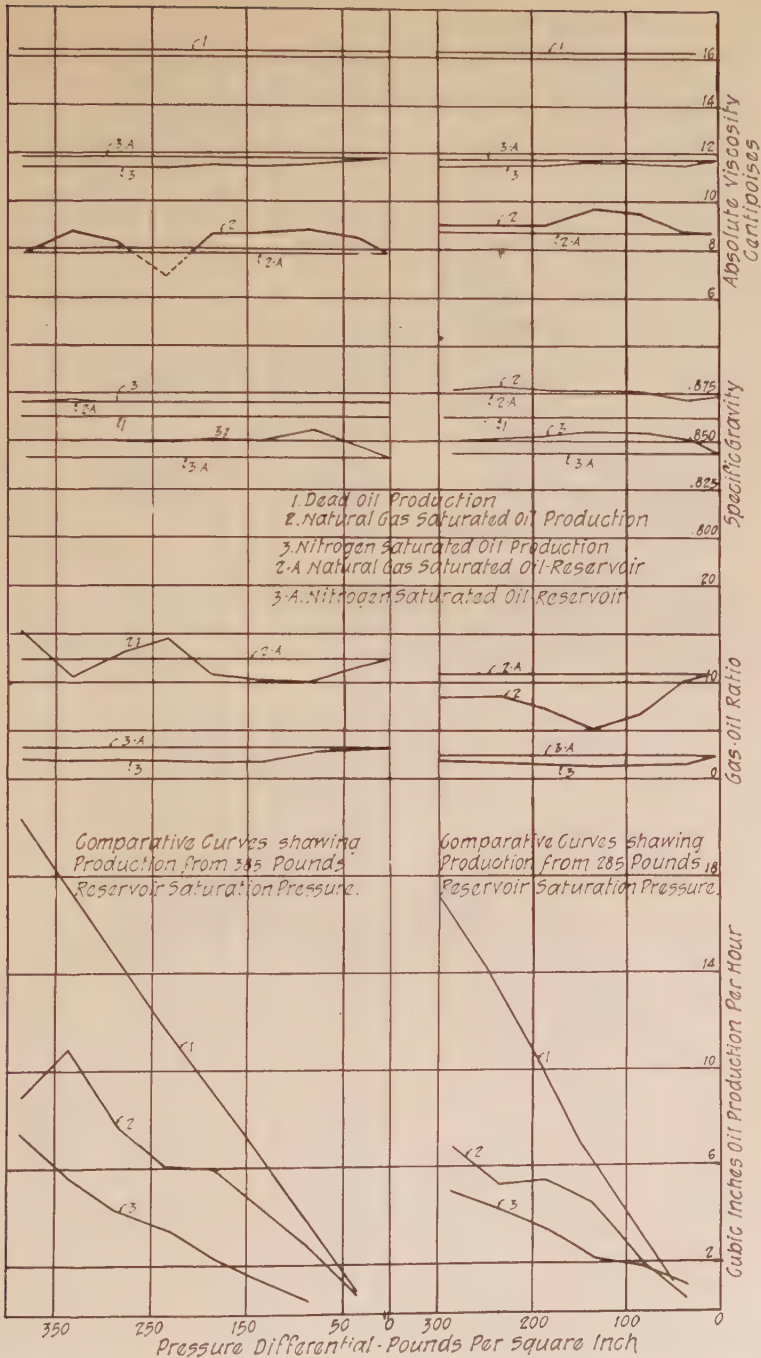 1
1
16
14
3-A
3-A
12
3
3
10
2
2
2-A
2-A
8
6
Absolute Viscosity
Centipoises
3
2
.875
2-A
2-A
1
1
3
32
.850
3-A
3-A
.825
Specific Gravity
1. Dead Oil Production
2. Natural Gas Saturated Oil Production
.800
3. Nitrogen Saturated Oil Production
2-A. Natural Gas Saturated Oil-Reservoir
20
3-A. Nitrogen Saturated Oil-Reservoir
2-A
2-A
10
2
3-A
3-A
3
3
0
Gas-Oil Ratio
Comparative Curves shawing
Production from 385 Pounds
Reservoir Saturation Pressure.
Comparative Curves shawing
Production from 285 Pounds
Reservoir Saturation Pressure.
18
14
1
1
10
2
2
6
3
3
2
Cubic Inches Oil Production Per Hour
350 250 150 50 0 300 200 100 0
Pressure Differential-Pounds Per Square Inch